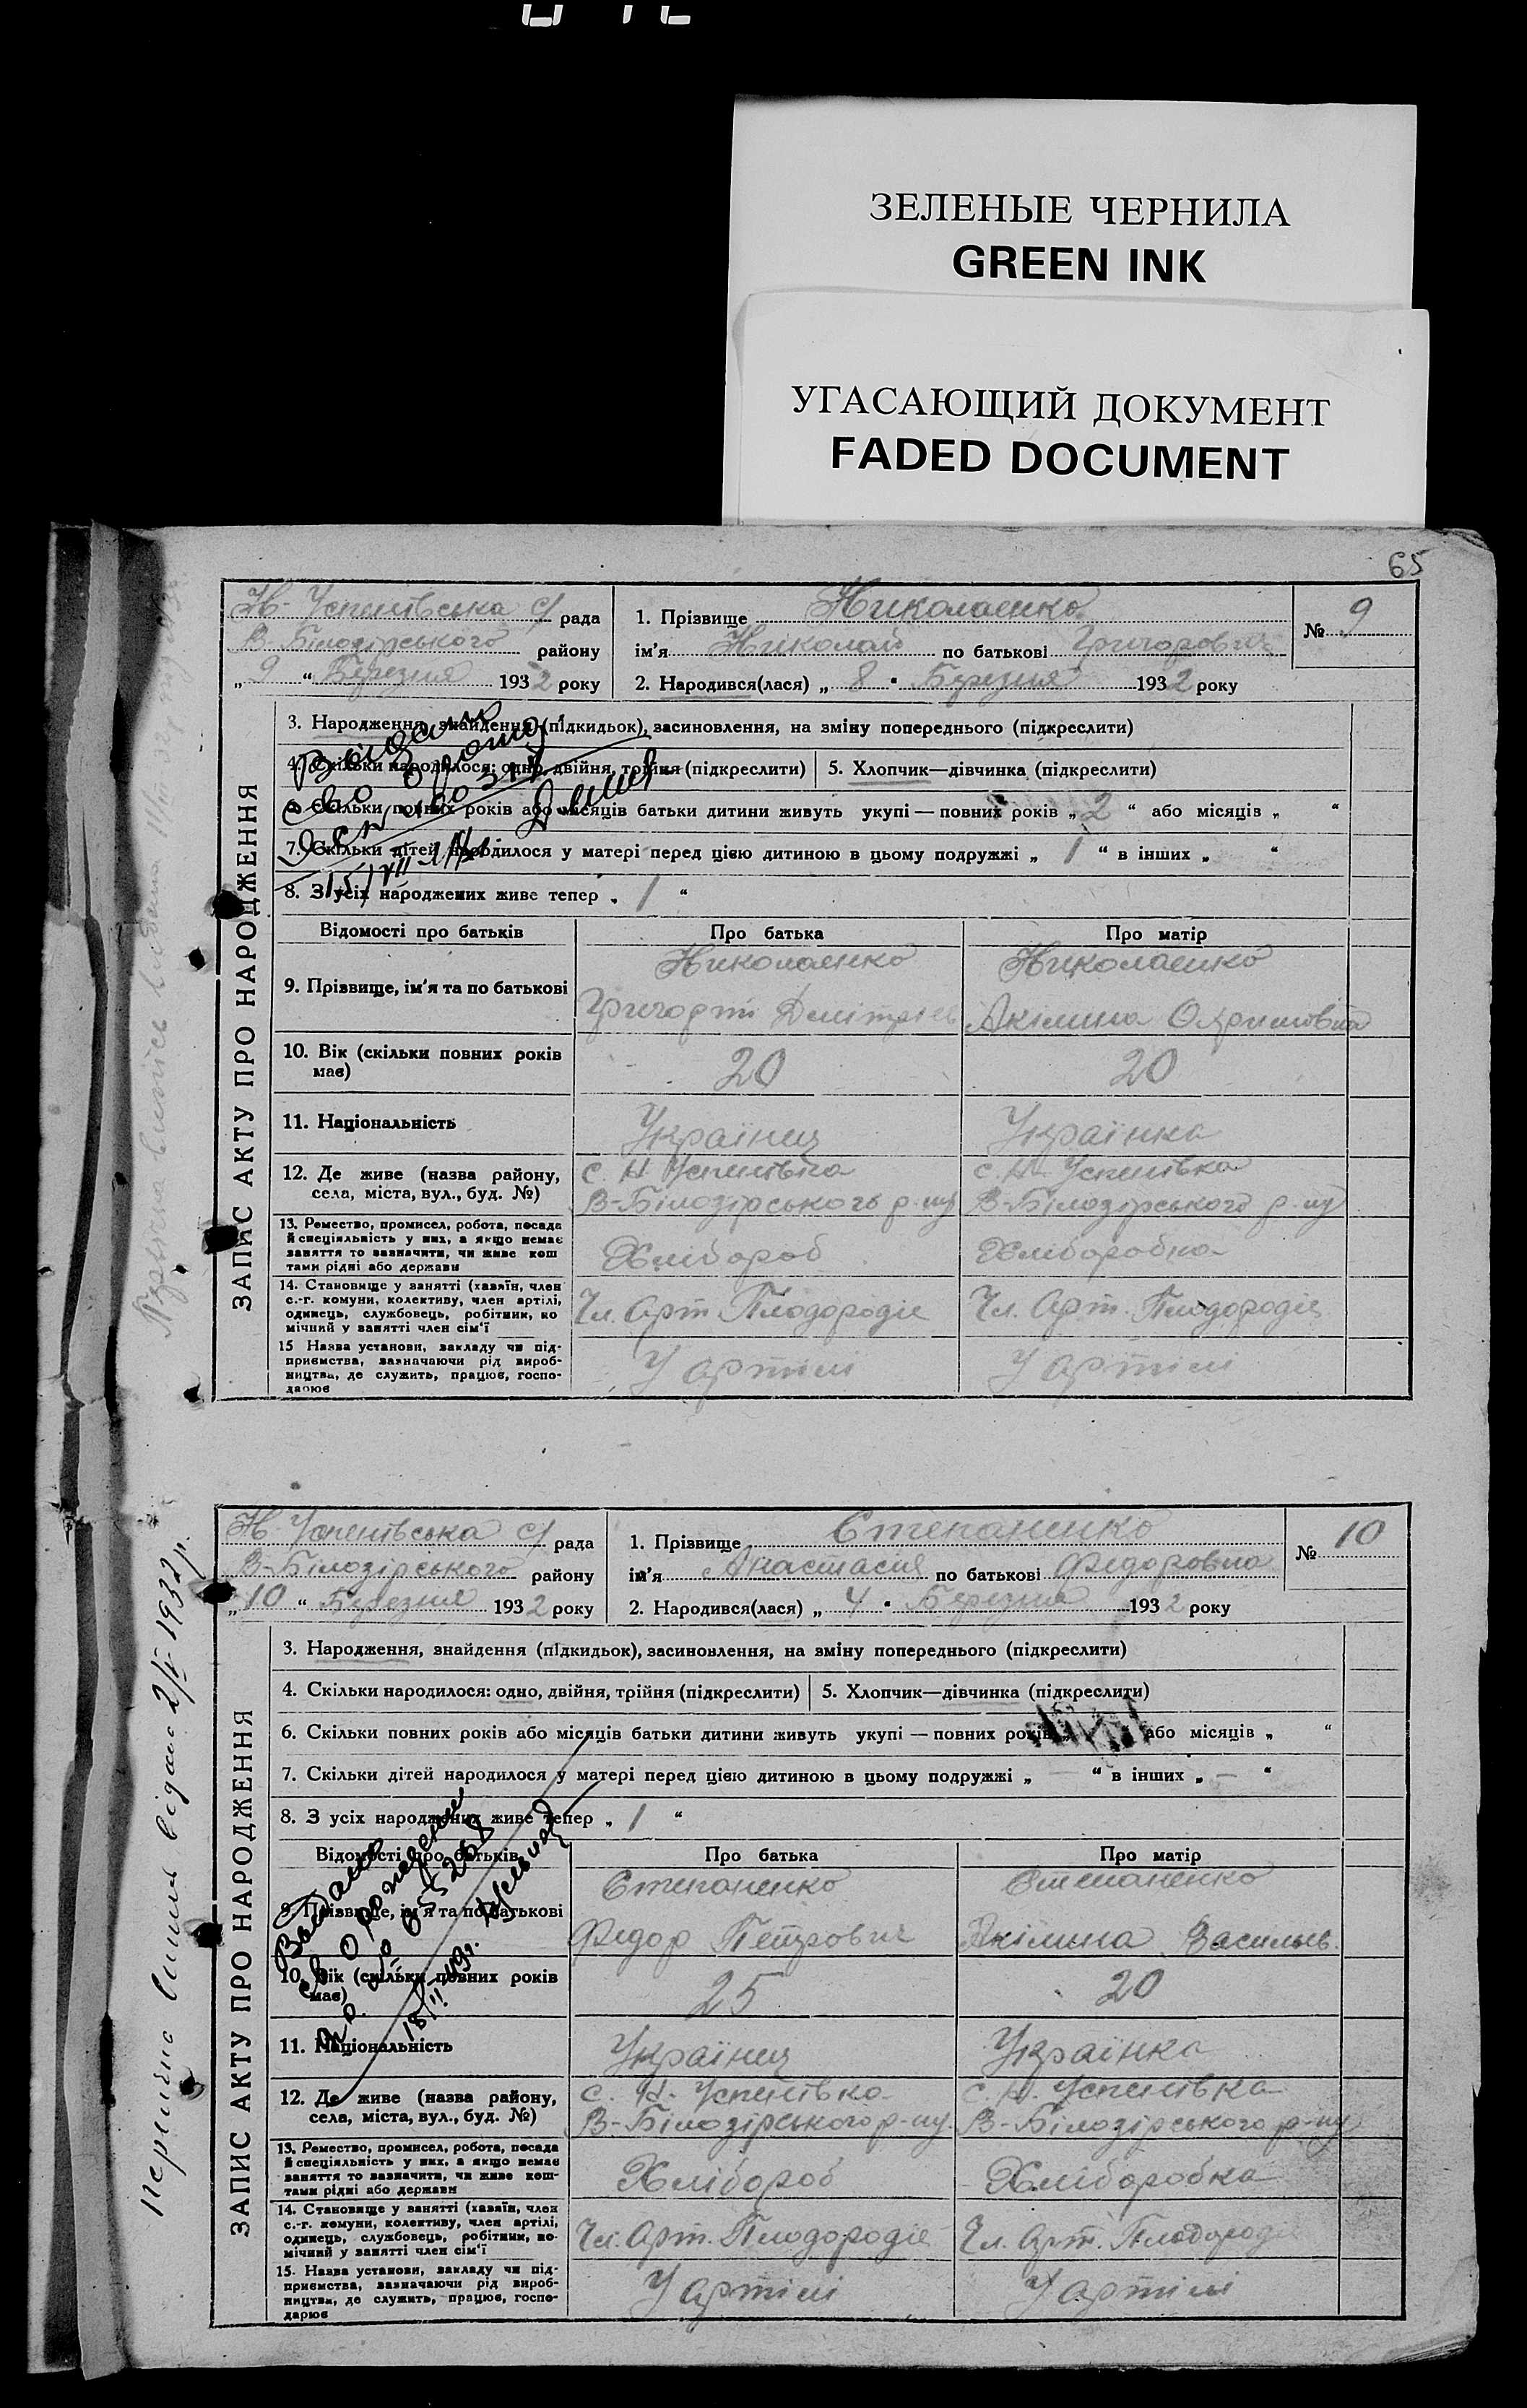 ЗЕЛЕНЫЕ ЧЕРНИЛА
GREEN INK
УГАСАЮЩИЙ ДОКУМЕНТ
FADED DOCUMENT
65
ЗАПИС АКТУ ПРО НАРОДЖЕННЯ
Н-Успенівська с/ рада
В-Білозірського району
„ 9 “ Березня 1932 року
1. Прізвище Николаенко
ім'я Николай по батькові Григорович
2. Народився(лася) „ 8 " Березня 1932 року
№ 9
3. Народження, знайдення (підкидьок), засиновлення, на зміну попереднього (підкреслити)
4. Скільки народилося: одно, двійня, трійня (підкреслити) 5. Хлопчик—дівчинка (підкреслити)
6. Скільки повних років або місяців батьки дитини живуть укупі — повних років „ 2 “ або місяців „ “
7. Скільки дітей народилося у матері перед цією дитиною в цьому подружжі „ 1 “ в інших „ “
8. З усіх народжених живе тепер „ 1 “
Відомості про батьків Про батька Про матір
9. Прізвище, ім'я та по батькові
Николаенко Николаенко
Григорій
10. Вік (скільки повних років має) 20 20
11. Національність Українец Українка
12. Де живе (назва району, села, міста, вул., буд. №)
с. Н. Успенівка с. Н. Успенівка
В-Білозірського р-ну В-Білозірського р-ну
13. Ремество, промисел, робота, посада
й спеціяльність у них, а якщо немає
заняття то зазначити, чи живе кош
тами рідні або держави
Хлібороб Хліборобка
14. Становище у занятті (хазяїн, член
с.-г. комуни, колективу, член артілі,
одинець, службовець, робітник, по
мічний у занятті член сім'ї
Чл. Арт. Плодородіе Чл. Арт. Плодородіе
15 Назва установи, закладу чи під-
приємства, зазначаючи рід вироб-
ництва, де служить, працює, госпо-
дарює
У артілі У артілі
ЗАПИС АКТУ ПРО НАРОДЖЕННЯ
Н-Успенівська с/ рада
В-Білозірського району
„ 10 “ Березня 1932 року
1. Прізвище Степаненко
ім'я Анастасия по батькові Федоровна
2. Народився(лася) „ 4 " Березня 1932 року
№ 10
3. Народження, знайдення (підкидьок), засиновлення, на зміну попереднього (підкреслити)
4. Скільки народилося: одно, двійня, трійня (підкреслити) 5. Хлопчик—дівчинка (підкреслити)
6. Скільки повних років або місяців батьки дитини живуть укупі — повних років або місяців „ “
7. Скільки дітей народилося у матері перед цією дитиною в цьому подружжі „ — “ в інших „ — “
8. З усіх народжених живе тепер „ 1 “
Відомості про батьків Про батька Про матір
9. Прізвище, ім'я та по батькові
Степаненко Степаненко
Федор Петрович Якіліна Васильев.
10. Вік (скільки повних років має) 25 20
11. Національність Українец Українка
12. Де живе (назва району, села, міста, вул., буд. №)
с. Н. Успенівка с. Н. Успенівка
В-Білозірського р-ну. В-Білозірського р-ну
13. Ремество, промисел, робота, посада
й спеціяльність у них, а якщо немає
заняття то зазначити, чи живе кош-
тами рідні або держави
Хлібороб Хліборобка
14. Становище у занятті (хазяїн, член
с.-г. комуни, колективу, член артілі,
одинець, службовець, робітник, по-
мічний у занятті член сім'ї
Чл. Арт. Плодородіе Чл. Арт. Плодородіе
15. Назва установи, закладу чи під-
приємства, зазначаючи рід вироб-
ництва, де служить, працює, госпо-
дарює
У артілі У артілі